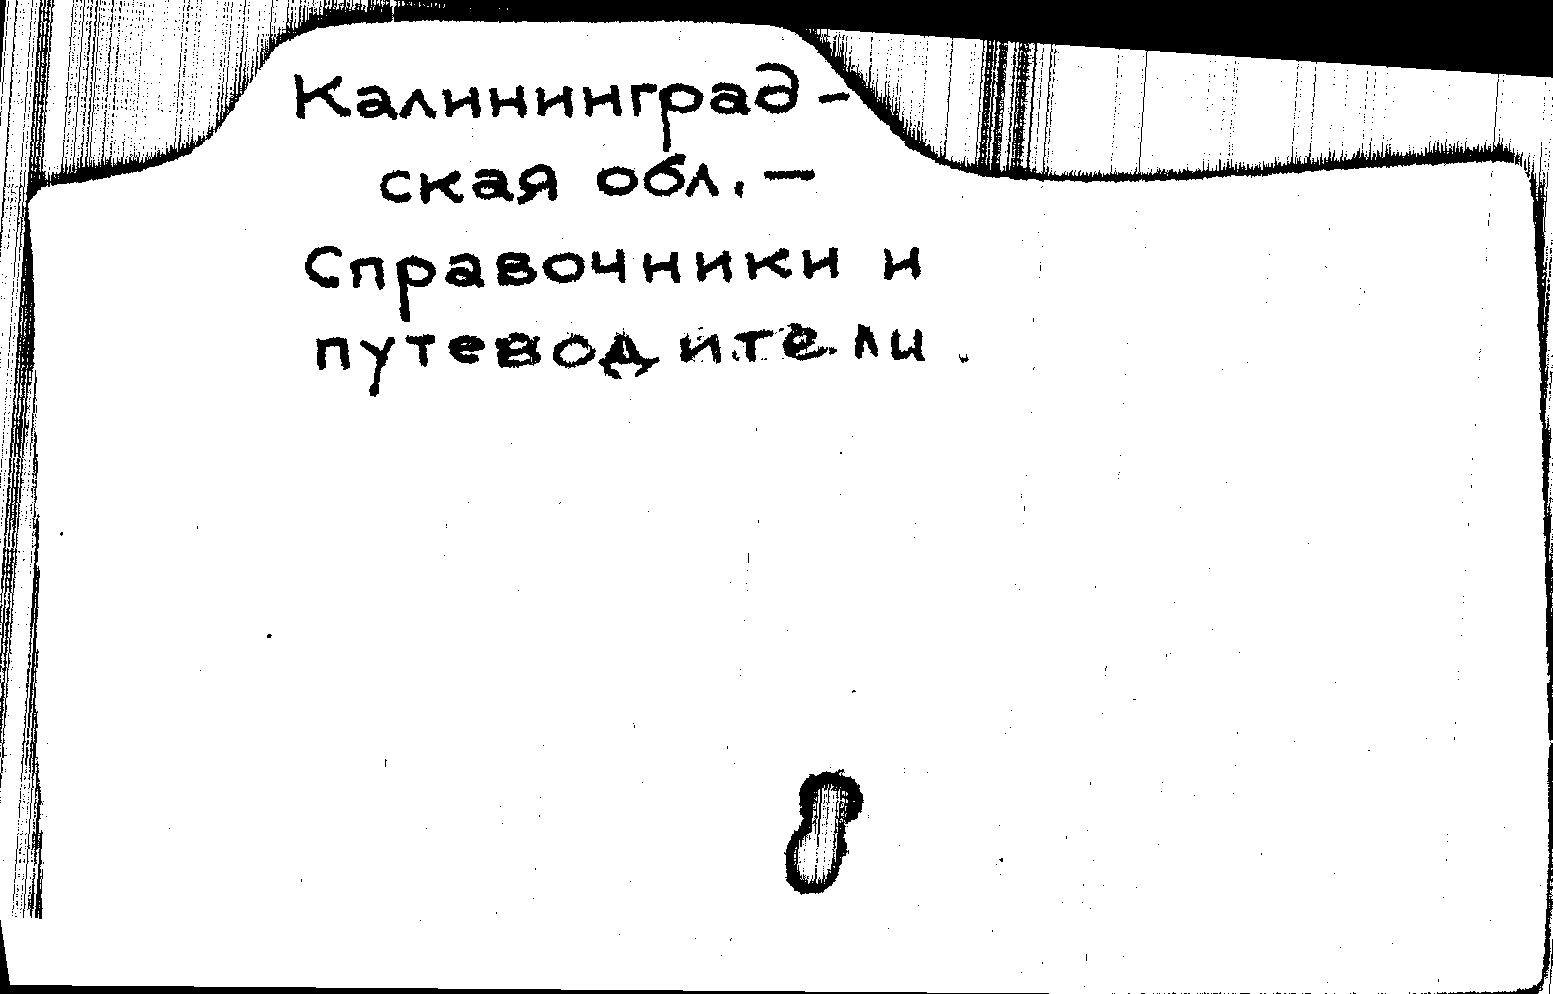 Калининград-
ская обл. —
Справочники и
путеводители.